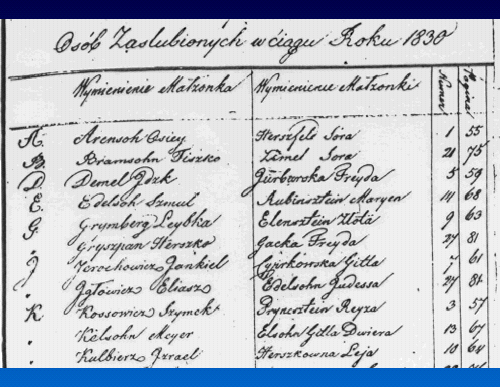 Osób Zaslubionych w ciągu Roku 1830
Wymienienie Małzonka Wymienienie Małzonki Numer Pagina
A. Arensoh Osiey Herszfels Sora 1 55
B. Bramsohn Fiszko Zimel Sora 21 75
D. Demel Jdzk Gürbarska Freyda 5 59
E. Edelsoh Szmul Rubinsztein Maryem 14 68
G. Grymberg Leybka Elensztein Złota 9 63
" Gryszpan Herszko Gacka Freyda 27 81
J Jerochowicz Jankiel Cyirkowska Gitla 7 61
" Jgłowicz Eliasz Edelsohn Judessa 27 81
K Kossowicz Szymek Bryncsztein Reyza 3 57
" Kelsohn Meyer Elsohn Gitla Dwiera 13 67
" Kulbierz Jzrael Herszkowna Leja 10 64